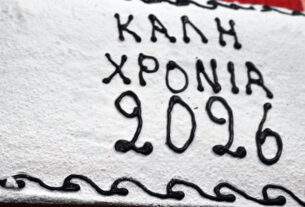 ΚΑΛΗ
ΧΡΟΝΙΑ
2026